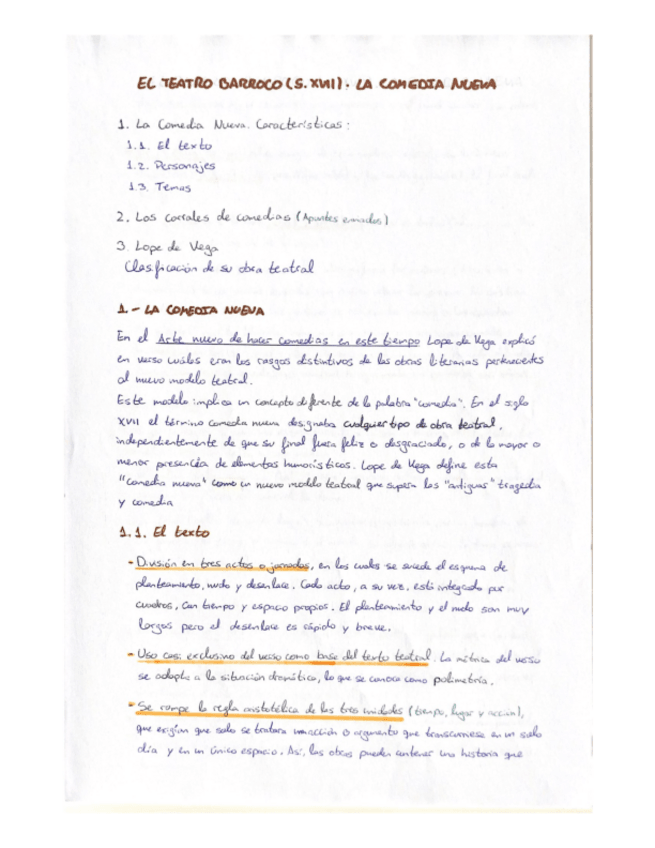 EL TEATRO BARROCO (S. XVII). LA COMEDIA NUEVA
1. La Comedia Nueva. Características:
1.1. El texto
1.2. Personajes
1.3. Temas
2. Los corrales de comedias (Apuntes enviados)
3. Lope de Vega
Clasificación de su obra teatral
1.- LA COMEDIA NUEVA
En el Arte nuevo de hacer comedias en este tiempo Lope de Vega explicó
en verso cuáles eran los rasgos distintivos de las obras literarias pertenecientes
al nuevo modelo teatral.
Este modelo implica un concepto diferente de la palabra "comedia". En el siglo
XVII el término comedia nueva designaba cualquier tipo de obra teatral,
independientemente de que su final fuera feliz o desgraciado, o de la mayor o
menor presencia de elementos humorísticos. Lope de Vega define esta
"comedia nueva" como un nuevo modelo teatral que supera las "antiguas" tragedia
y comedia
1.1. El texto
- División en tres actos o jornadas, en los cuales se sucede el esquema de
planteamiento, nudo y desenlace. Cada acto, a su vez, está integrado por
cuadros, con tiempo y espacio propios. El planteamiento y el nudo son muy
largos pero el desenlace es rápido y breve.
- Uso casi exclusivo del verso como base del texto teatral. La métrica del verso
se adapta a la situación dramática, lo que se conoce como polimetría.
- Se rompe la regla aristotélica de las tres unidades (tiempo, lugar y acción),
que exigían que solo se tratara una acción o argumento que transcurriese en un solo
día y en un único espacio. Así, las obras pueden contener una historia que